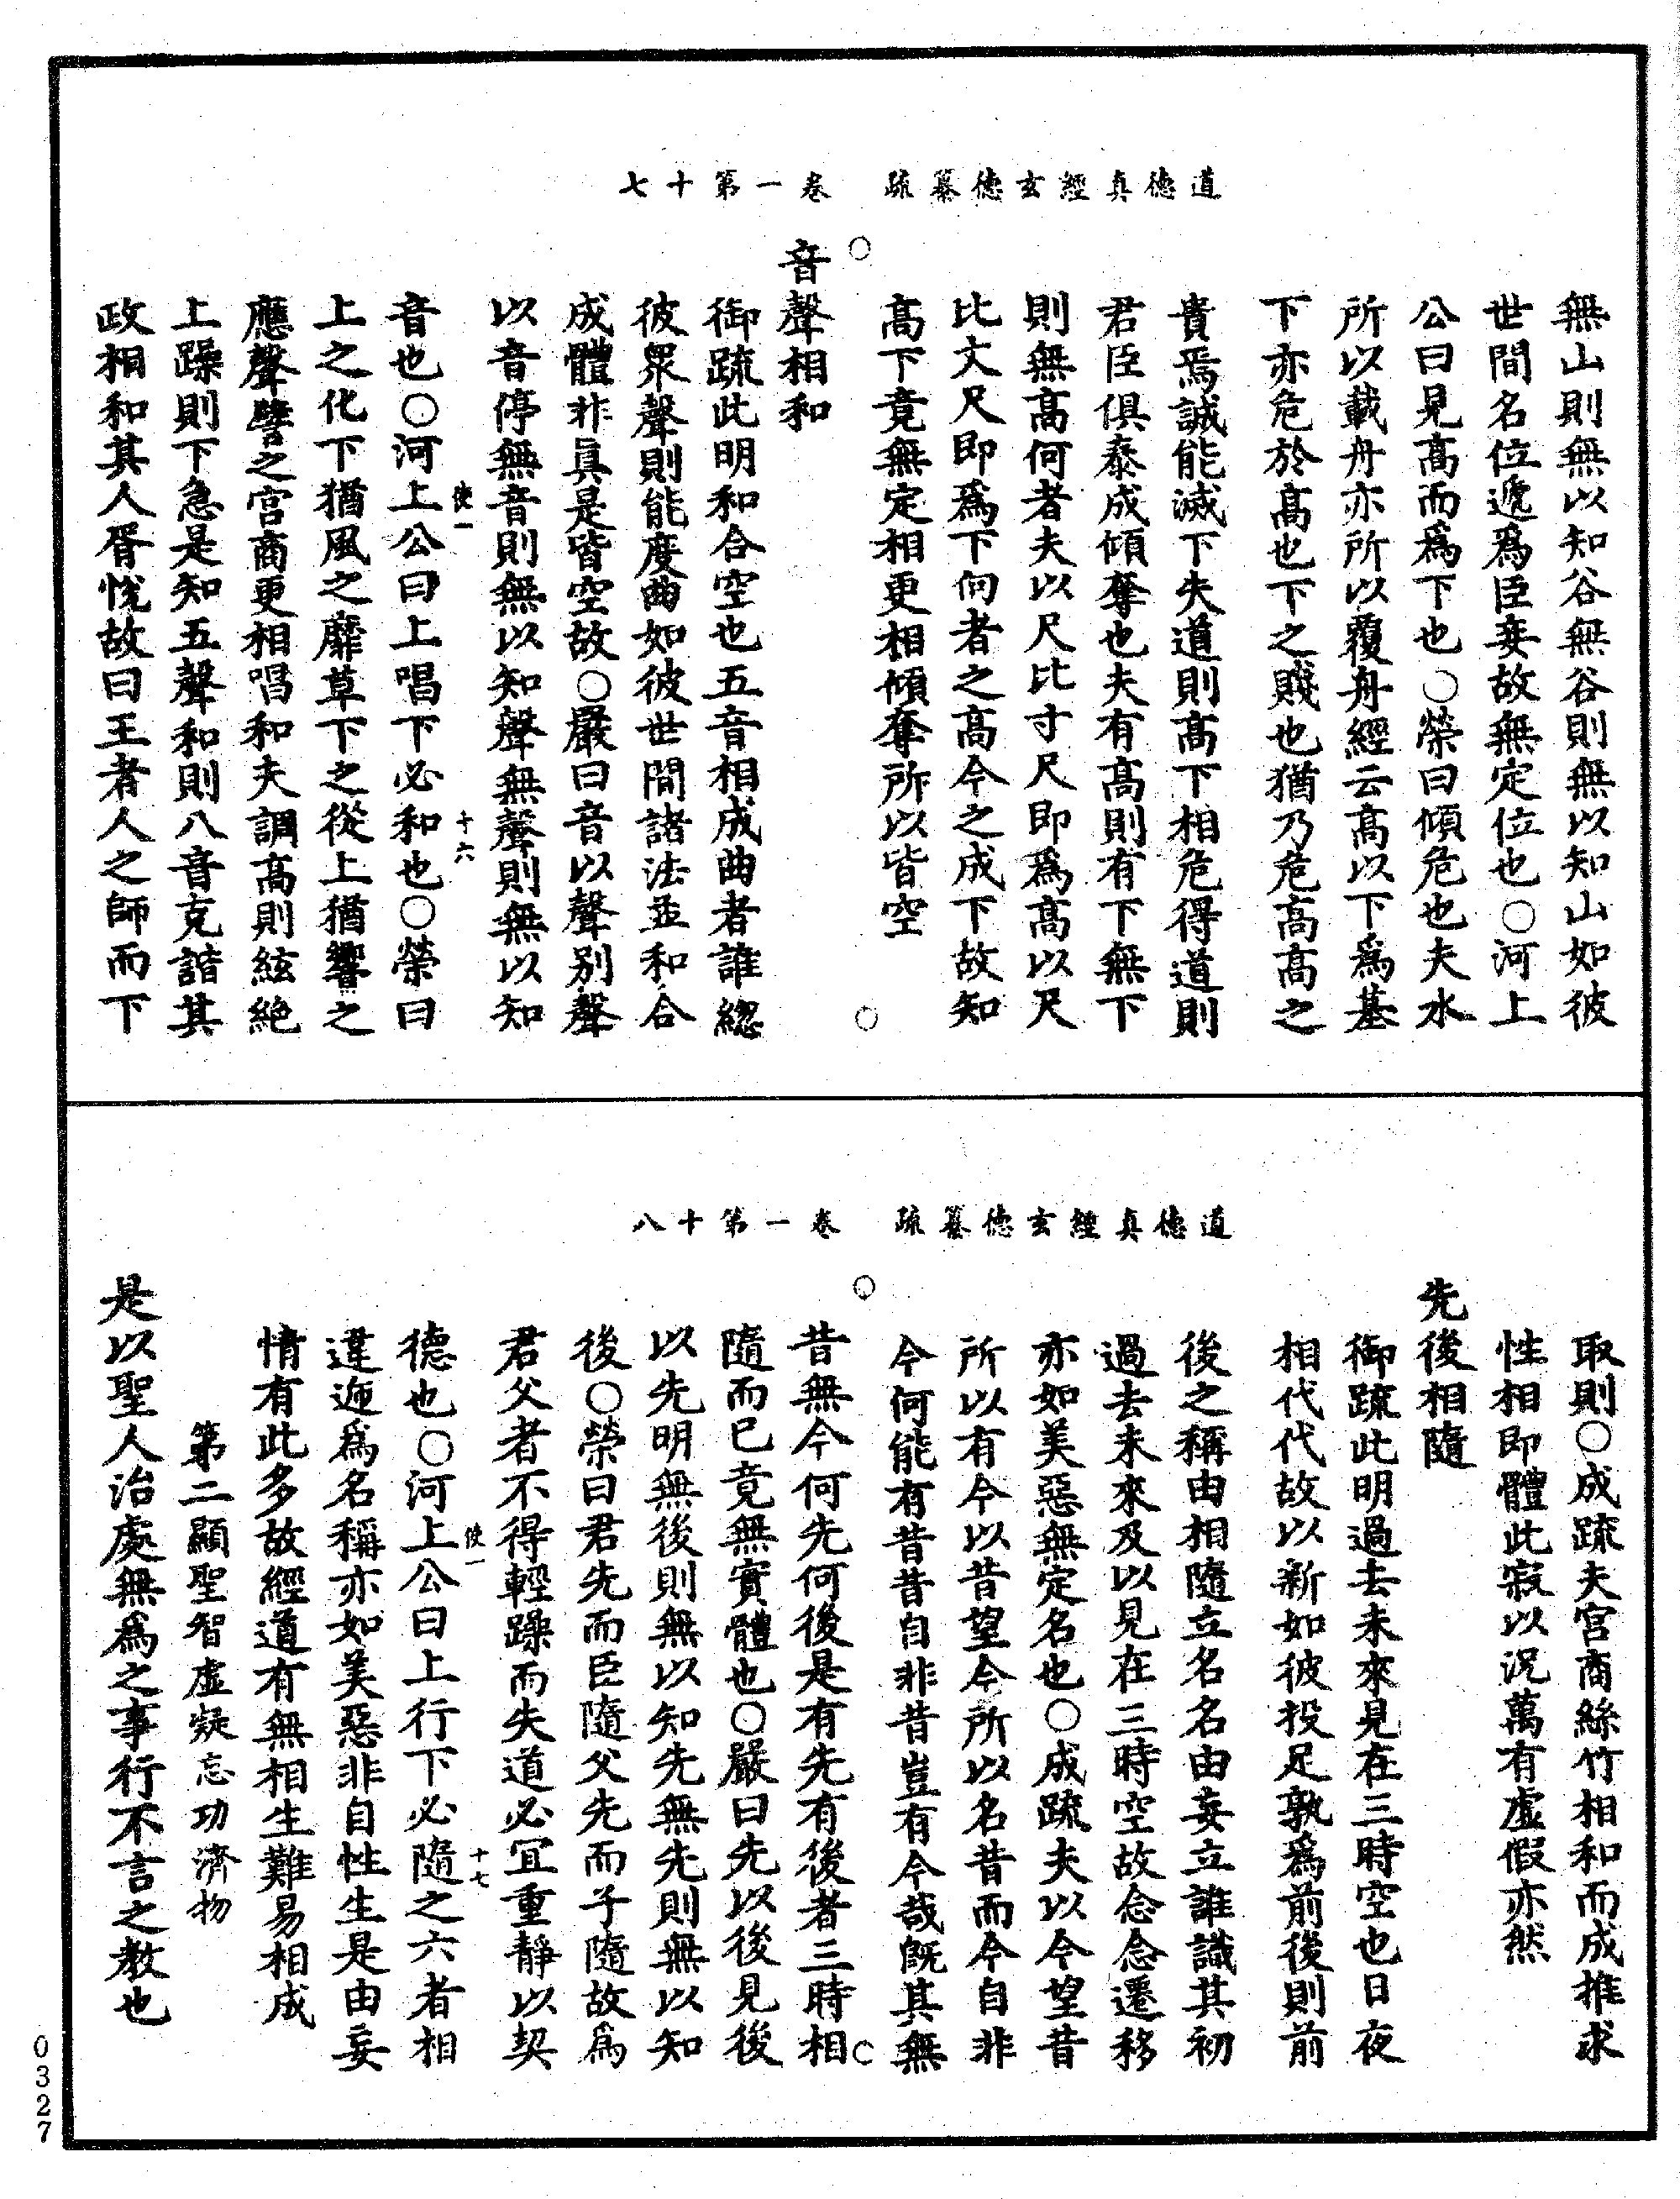 道德真經玄德纂疏　卷一第十七
無山則無以知谷無谷則無以知山如彼
世間名位遞爲臣妾故無定位也○河上
公曰見高而爲下也○榮曰傾危也夫水
所以載舟亦所以覆舟經云高以下爲基
下亦危於高也下之賤也猶乃危高高之
貴焉誠能滅下失道則高下相危得道則
君臣俱泰成傾奪也夫有高則有下無下
則無高何者夫以尺比寸尺即爲高以尺
比丈尺即爲下向者之高今之成下故知
高下竟無定相更相傾奪所以皆空
音聲相和
御疏此明和合空也五音相成曲者誰緫
彼衆聲則能度曲如彼世間諸法並和合
成體非眞是皆空故○嚴曰音以聲别聲
以音停無音則無以知聲無聲則無以知
使一
十六
音也○河上公曰上唱下必和也○榮曰
上之化下猶風之靡草下之從上猶響之
應聲譬之宮商更相唱和夫調高則絃絶
上躁則下急是知五聲和則八音克諧其
政相和其人胥悅故曰王者人之師而下
道德真經玄德纂疏　卷一第十八
取則○成疏夫宮商絲竹相和而成推求
性相即體此寂以況萬有虛假亦然
先後相隨
御疏此明過去未來見在三時空也日夜
相代代故以新如彼投足孰爲前後則前
後之稱由相隨立名名由妄立誰識其初
過去未來及以見在三時空故念念遷移
亦如美惡無定名也○成疏夫以今望昔
所以有今以昔望今所以名昔而今自非
今何能有昔昔自非昔豈有今哉旣其無
昔無今何先何後是有先有後者三時相
隨而已竟無實體也○嚴曰先以後見後
以先明無後則無以知先無先則無以知
後○榮曰君先而臣隨父先而子隨故爲
君父者不得輕躁而失道必宜重靜以契
使一
十七
德也○河上公曰上行下必隨之六者相
違迊爲名稱亦如美惡非自性生是由妄
情有此多故經道有無相生難易相成
第二顯聖智虛凝忘功濟物
是以聖人治處無爲之事行不言之教也
0327